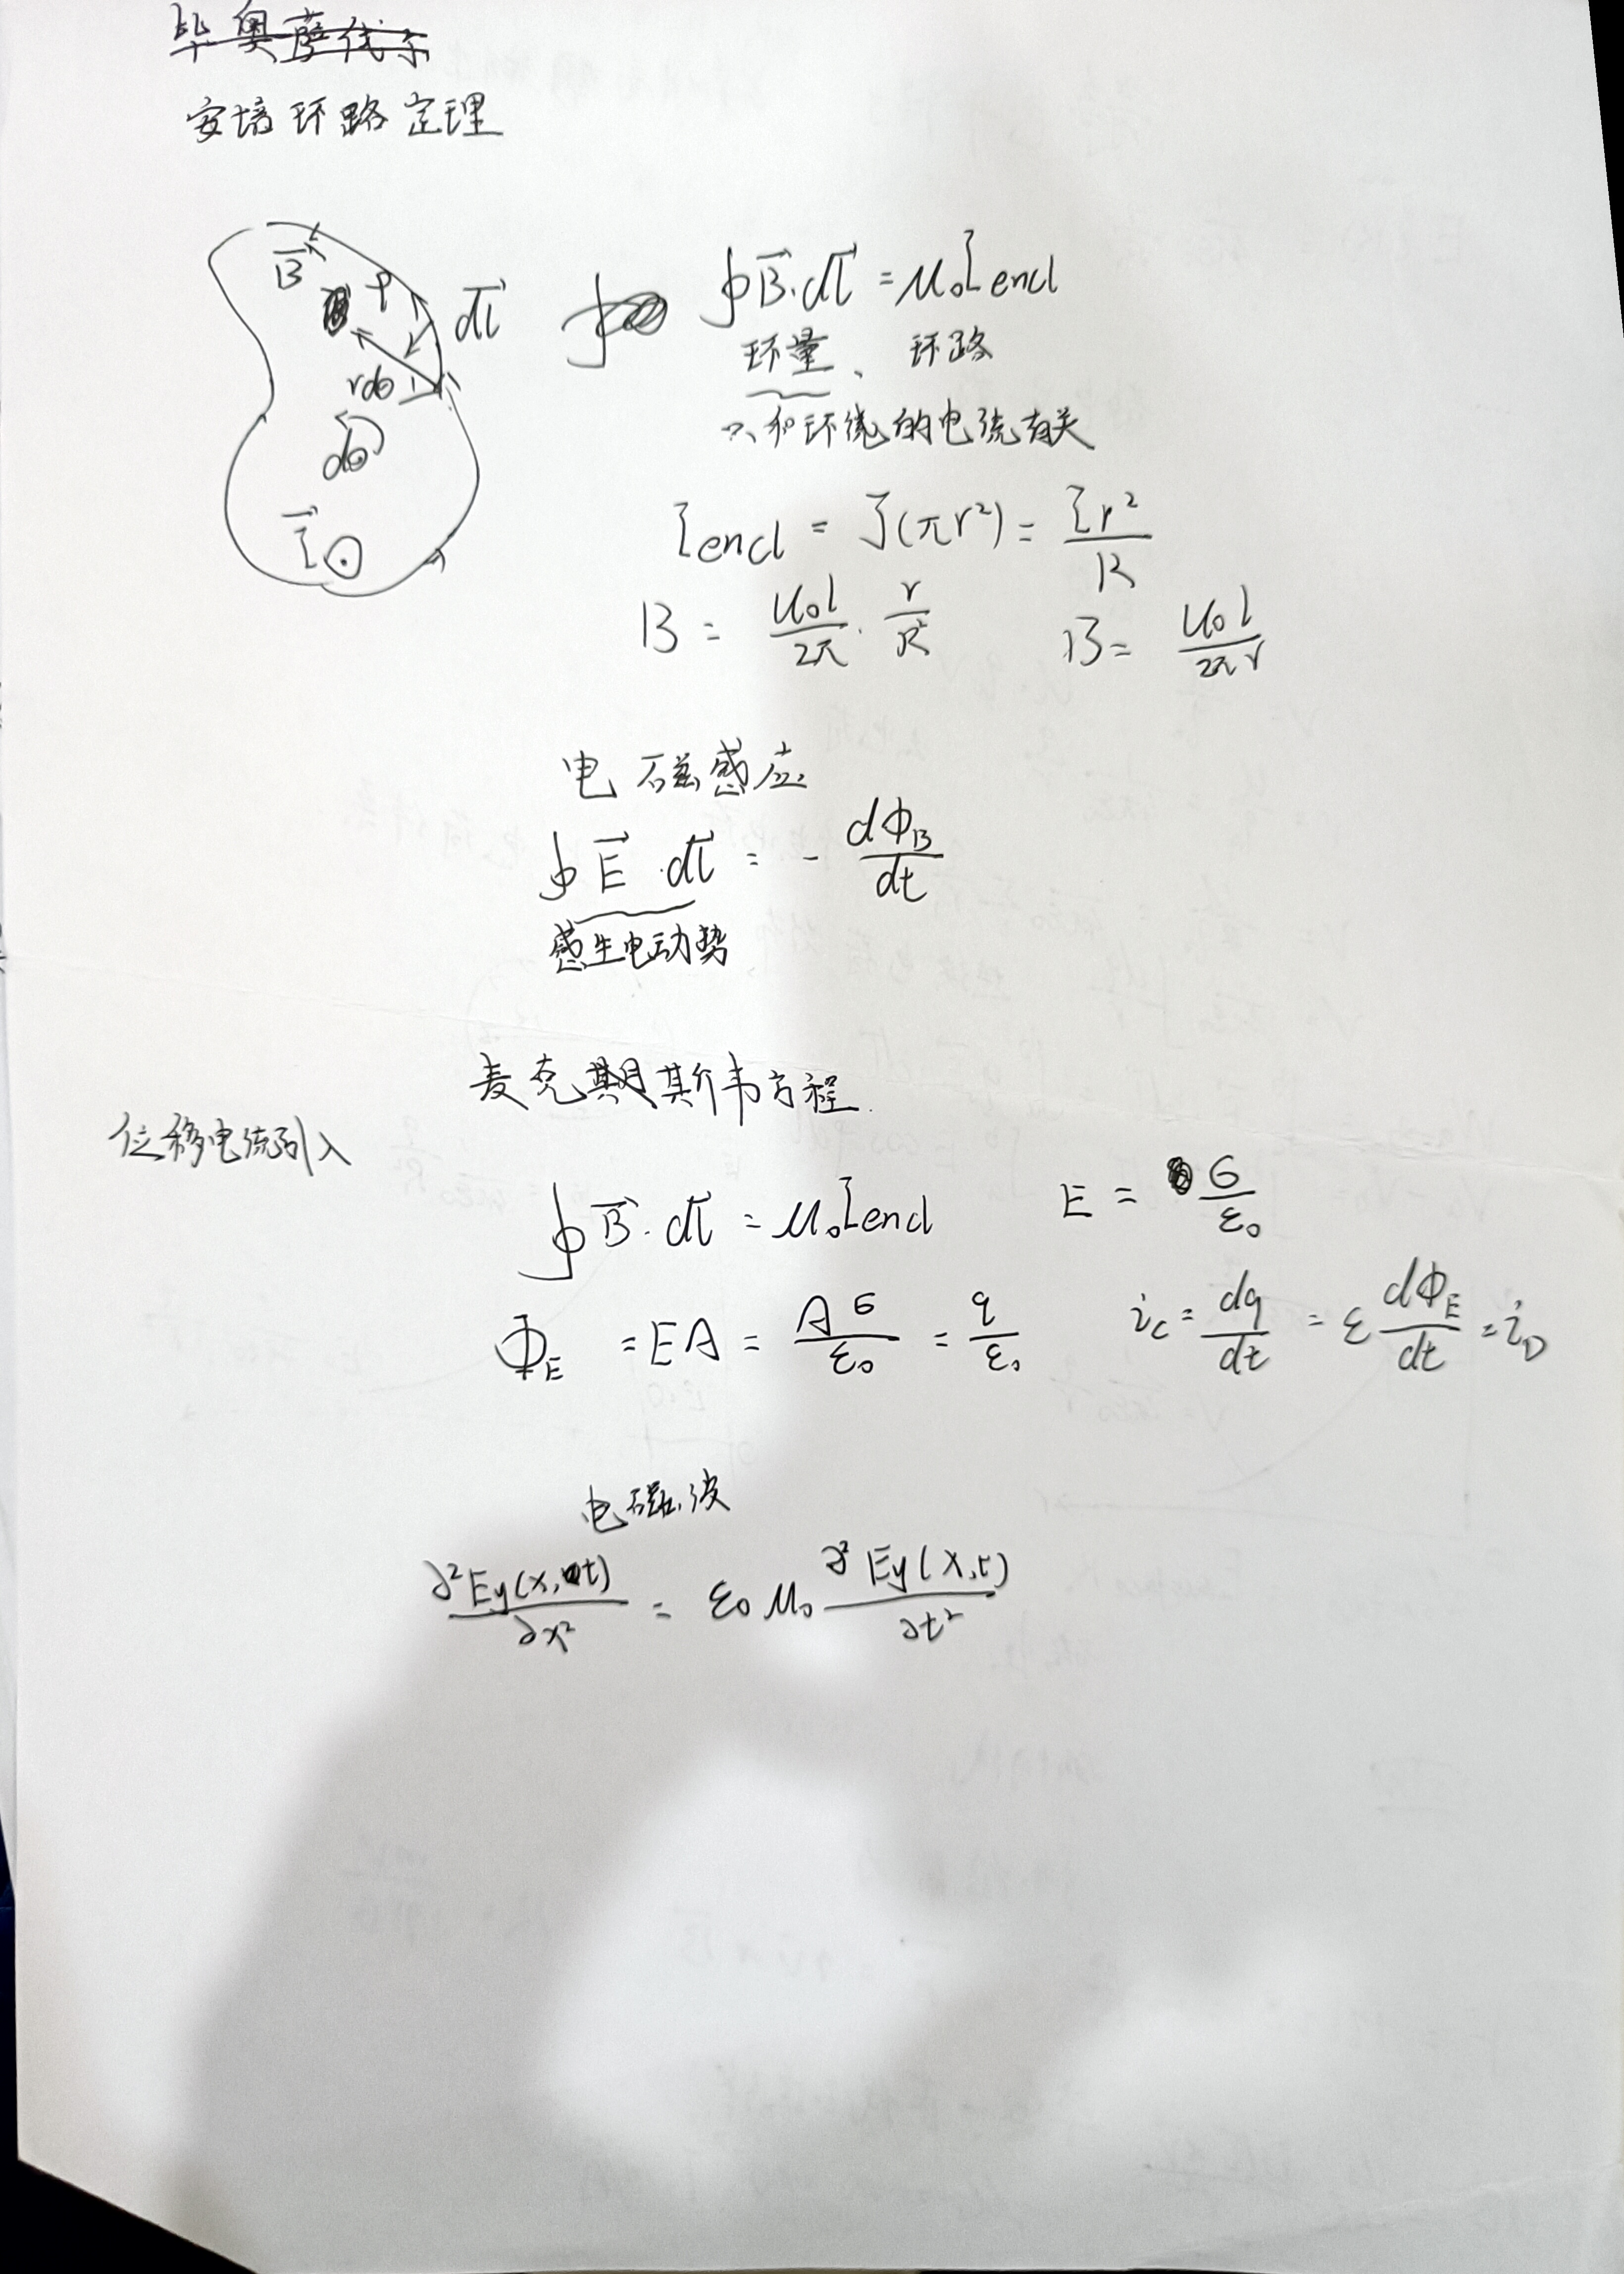 毕奥萨伐尔
安培环路定理
B⃗ φ dl⃗
∮B⃗·dl⃗ = μ₀Iencl
环量、环路
只和环绕的电流有关
rdθ
dθ
I⃗ ⊙
Iencl = J(πr²) = Ir²/R
B = μ₀I/2π · r/R² B = μ₀I/2πr
电磁感应
∮E⃗·dl⃗ = - dΦB/dt
感生电动势
麦克斯韦方程
位移电流引入
∮B⃗·dl⃗ = μ₀Iencl E = σ/ε₀
ΦE = EA = Aσ/ε₀ = q/ε₀ ic = dq/dt = ε dΦE/dt = iD
电磁波
∂²Ey(x,t)/∂x² = ε₀μ₀ ∂²Ey(x,t)/∂t²